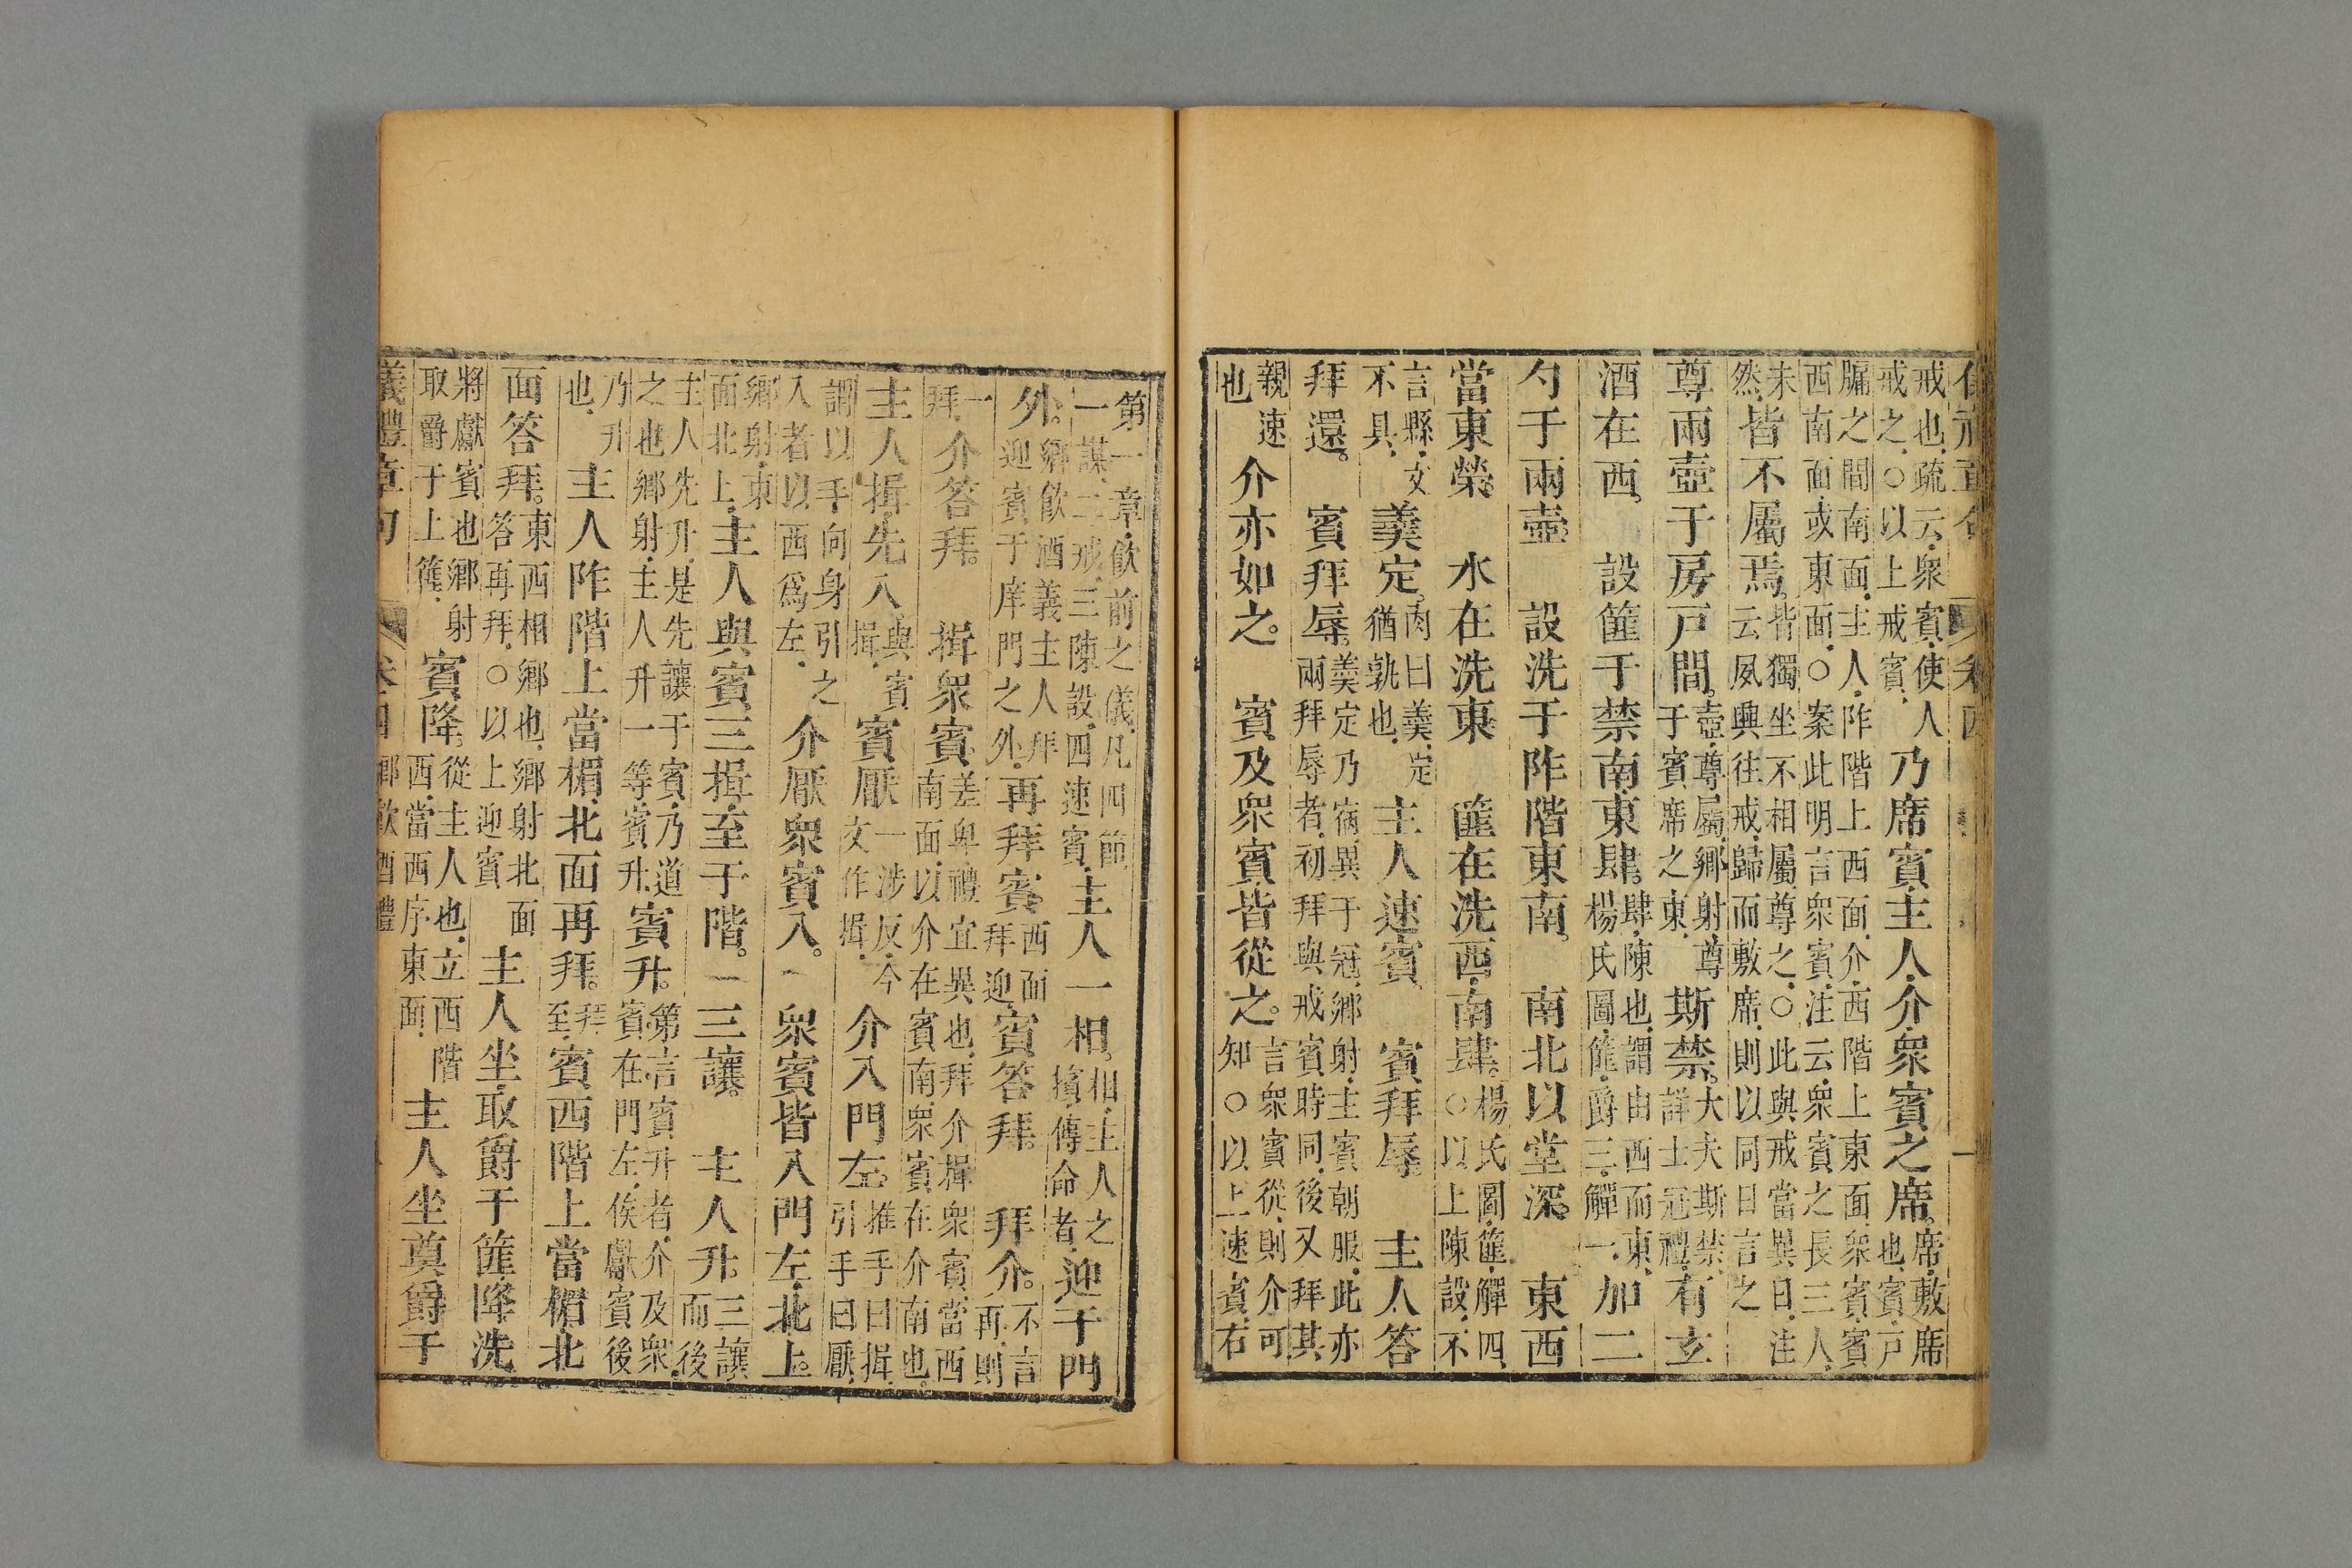 戒也疏云衆賓使人
戒之○以上戒賓
乃席賓主人介衆賓之席
席敷席
也賓戶
牖之間南面主人阼階上西面介西階上東面衆賓賓
西南面或東面○案此明言衆賓注云衆賓之長三人
未
然
皆不屬焉
皆獨坐不相屬尊之○此與戒當異日注
云夙興往戒歸而敷席則以同日言之
尊兩壺于房戶間
壺尊屬鄉射尊
于賓席之東
斯禁
大夫斯禁
詳士冠禮
有玄
酒在西 設篚于禁南東肆
肆陳也謂由西而東
楊氏圖篚爵三觶一
加二
勺于兩壺 設洗于阼階東南 南北以堂深 東西
當東榮 水在洗東 篚在洗西南肆
楊氏圖篚觶四
○以上陳設不
言縣文
不具
羹定
肉曰羹定
猶孰也
主人速賓 賓拜辱 主人答
拜還 賓拜辱
羹定乃宿異于冠鄉射主賓朝服此亦
兩拜辱者初拜與戒賓時同後又拜其
親速
也
介亦如之 賓及衆賓皆從之
言衆賓從則介可
知○以上速賓右
第一章飲前之儀凡四節
一謀二戒三陳設四速賓
主人一相
相主人之
擯傳命者
迎于門
外
鄉飲酒義主人拜
迎賓于庠門之外
再拜賓
西面
拜迎
賓答拜 拜介
不言
再則
一
拜
介答拜 揖衆賓
差卑禮宜異也拜介揖衆賓當西
南面以介在賓南衆賓在介南也
主人揖先入
與賓
揖
賓厭
一涉反今
文作揖
介入門左
推手曰揖
引手曰厭
謂以手向身引之
入者以西爲左
介厭衆賓入 衆賓皆入門左北上
鄉射東
面北上
主人與賓三揖至于階 三讓 主人升
三讓
而後
主人先升是先讓于賓乃道
之也鄉射主人升一等賓升
賓升
第言賓升者介及衆
賓在門左俟獻賓後
乃升
也
主人阼階上當楣北面再拜
拜
至
賓西階上當楣北
面答拜
東西相鄉也鄉射北面
答再拜○以上迎賓
主人坐取爵于篚降洗
將獻賓也鄉射
取爵于上篚
賓降
從主人也立西階
西當西序東面
主人坐奠爵于
儀禮章句 卷四 鄉飲酒禮